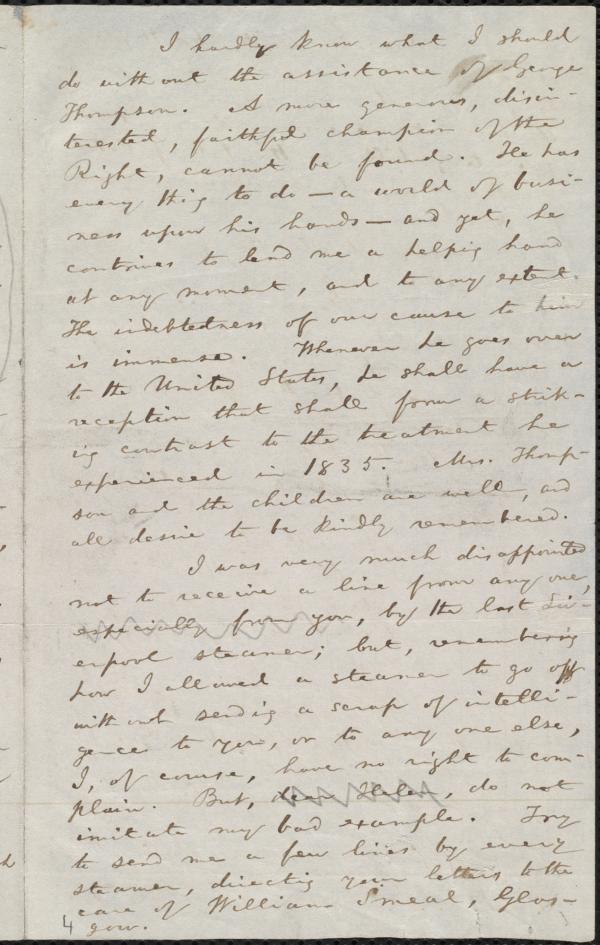 I hardly know what I should
do without the assistance of George
Thompson. A more generous, disin-
terested, faithful champion of the
Right, cannot be found. He has
every thig to do — a world of busi-
ness upon his hands — and yet, he
contrives to lend me a helpig hand
at any moment, and to any extent.
The indebtedness of our cause to him
is immense. Whenever he goes over
to the United States, he shall have a
reception that shall form a strik-
ig contrast to the treatment he
experienced in 1835. Mrs. Thomp-
son and the children are well, and
all desire to be kindly remembered.
I was very much disappointed
not to receive a line from any one,
especially from you, by the last Liv-
erpool steamer; but, remembering
how I allowed a steamer to go off
without sendig a scrap of intelli-
gence to you, or to any one else,
I, of course, have no right to com-
plain. But, dear Helen, do not
imitate my bad example. Try
to send me a few lines by every
steamer, directig your letters to the
care of William Smeal, Glas-
gow.
4